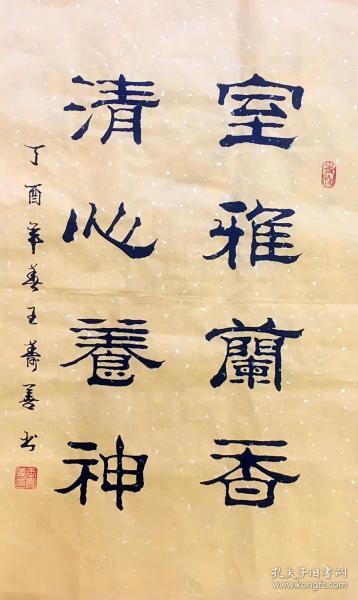 室雅蘭香
清心養神
丁酉年春王壽善书
孔夫子旧书网
www.kongfz.com